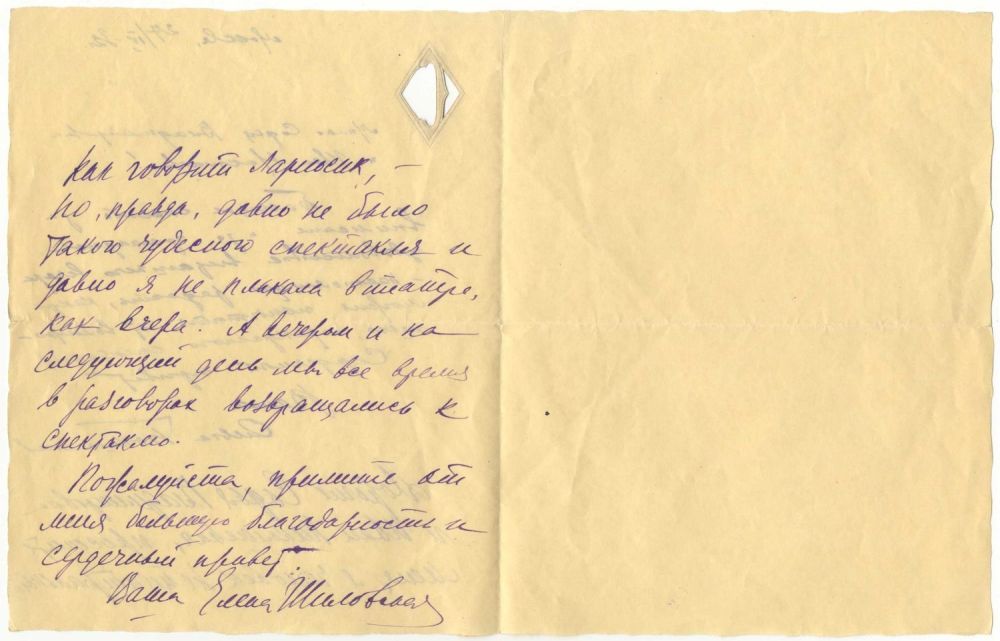 Как говорит Лариосик, —
но, правда, давно не было
такого чудесного спектакля и
давно я не плакала в театре,
как вчера. А вечером и на
следующий день мы все время
в разговорах возвращались к
спектаклю.
Пожалуйста, примите от
меня большую благодарность и
сердечный привет.
Ваша Елена Шиловская